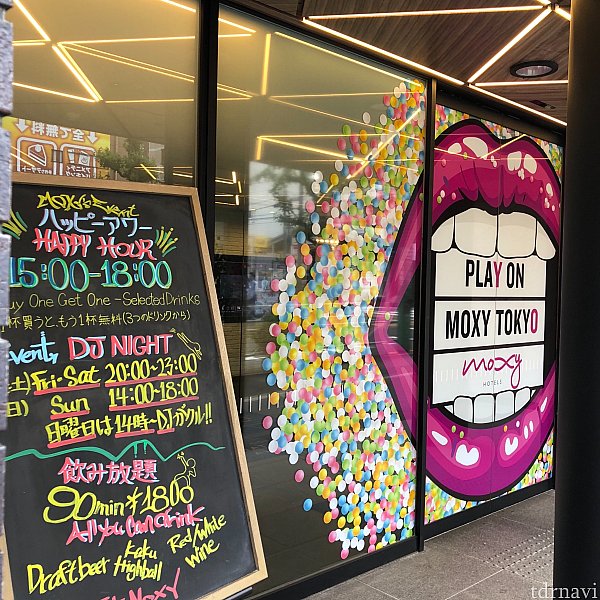 全て無料
MOXY's Event
ハッピーアワー
HAPPY HOUR
15:00-18:00
Buy One Get One - Selected Drinks
1杯買うと、もう1杯無料(3つのドリンクから)
Event, DJ NIGHT
(土) Fri-Sat 20:00-23:00
(日) Sun 14:00-18:00
日曜日は14時~DJがクル!!
飲み放題
90min ¥1800
All You Can drink
Draft beer Kaku Highball Red/White Wine
Moxy
PLAY ON
MOXY TOKYO
moxy
HOTELS
tdrnavi